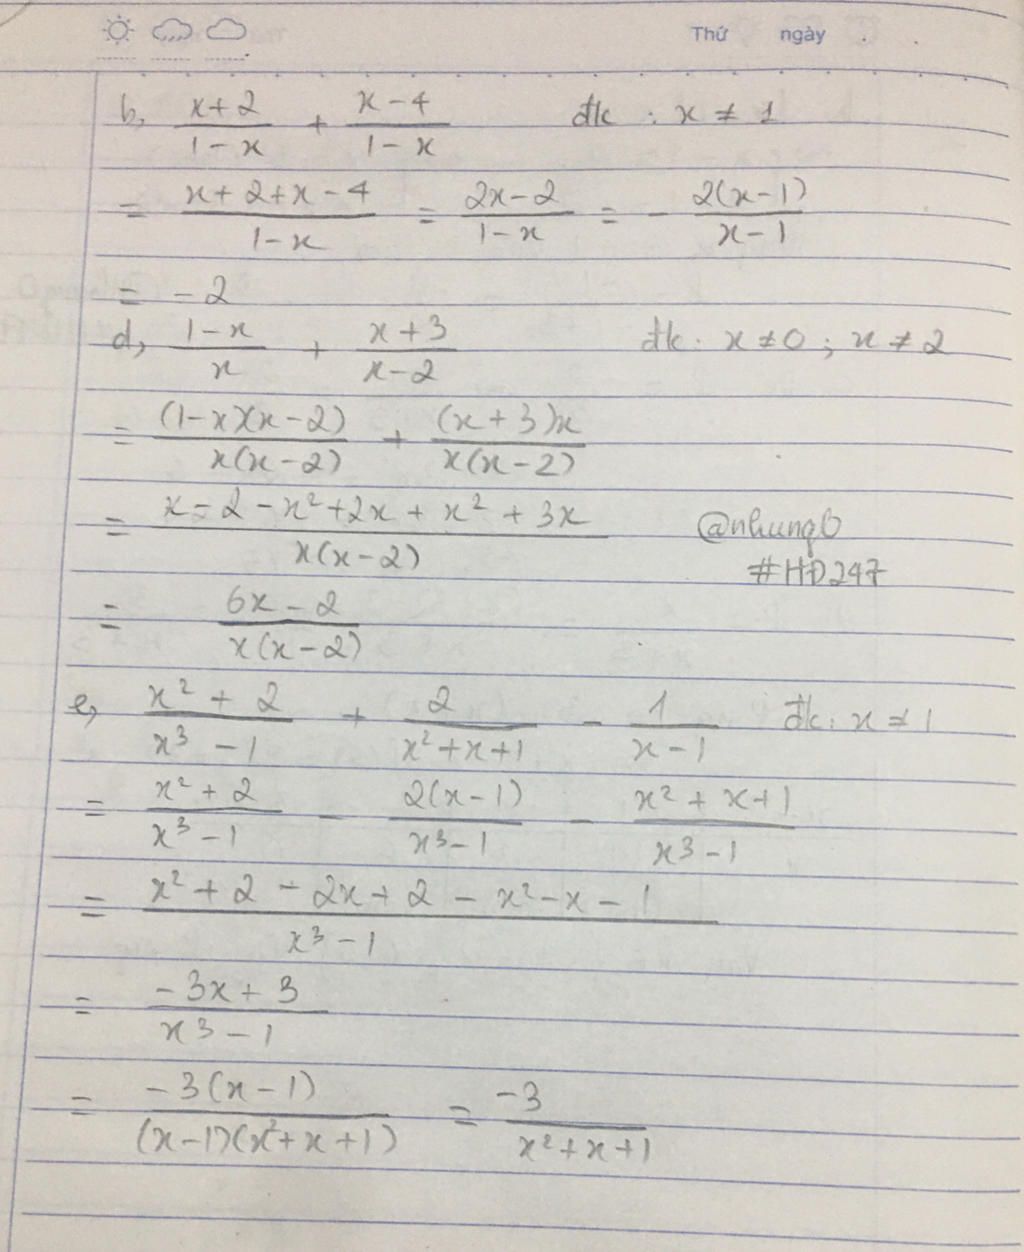 Thứ ngày
b, (x+2)/(1-x) + (x-4)/(1-x) đk : x ≠ 1
= (x+2+x-4)/(1-x) = (2x-2)/(1-x) = - 2(x-1)/(x-1)
= -2
d, (1-x)/x + (x+3)/(x-2) đk: x ≠ 0 ; x ≠ 2
= (1-x)(x-2)/x(x-2) + (x+3)x/x(x-2)
= (x-2-x²+2x+x²+3x)/x(x-2)
@nhungb
#HĐ247
= (6x-2)/x(x-2)
e, (x²+2)/(x³-1) + 2/(x²+x+1) - 1/(x-1) đk: x ≠ 1
= (x²+2)/(x³-1) - 2(x-1)/(x³-1) - (x²+x+1)/(x³-1)
= (x²+2-2x+2-x²-x-1)/(x³-1)
= (-3x+3)/(x³-1)
= -3(x-1)/(x-1)(x²+x+1) = -3/(x²+x+1)